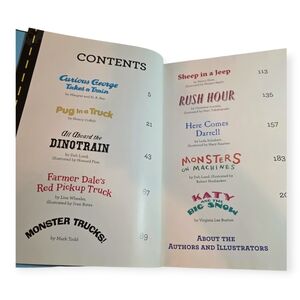 CONTENTS
Curious George
Takes a Train
by Margret and H. A. Rey
5
Pug in a Truck
by Nancy Coffelt
21
All Aboard the
DINOTRAIN
by Deb Lund,
illustrated by Howard Fine
43
Farmer Dale's
Red Pickup Truck
by Lisa Wheeler,
illustrated by Ivan Bates
67
MONSTER TRUCKS!
by Mark Todd
89
Sheep in a Jeep
by Nancy Shaw,
illustrated by Margot Apple
113
RUSH HOUR
135
Here Comes
Darrell
by Leda Schubert,
illustrated by Mary Azarian
157
MONSTERS
ON MACHINES
by Deb Lund, illustrated by
Robert Neubecker
183
KATY
AND THE
BIG SNOW
by Virginia Lee Burton
20
ABOUT THE
AUTHORS AND ILLUSTRATORS